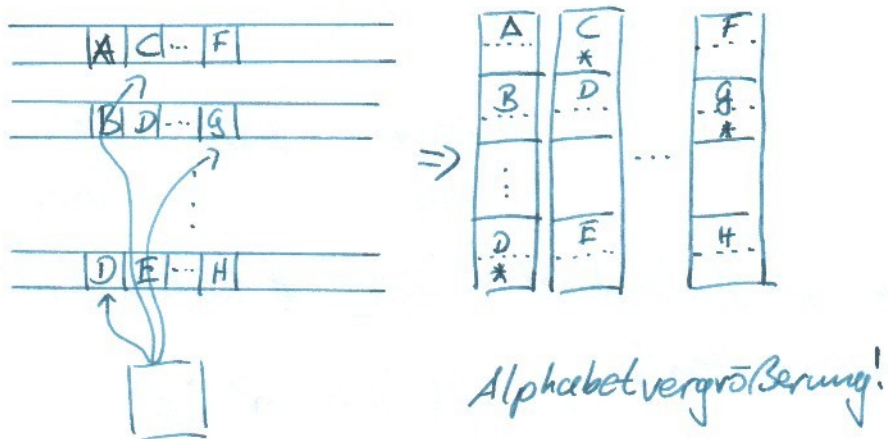 A C ... F
B D ... G
D E ... H
⇒
A C ... F
*
B D G
*
⋮
D E H
*
Alphabetvergrößerung!